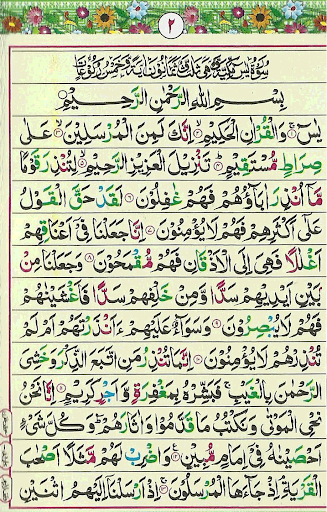 ٢
سُوْرَةُ يٰسٓ مَكِّيَّةٌ وَّهِيَ ثَلٰثٌ وَّثَمَانُوْنَ اٰيَةً وَّخَمْسُ رُكُوْعَاتٍ
بِسْمِ اللهِ الرَّحْمٰنِ الرَّحِيْمِ
يٰسٓ ۝١ وَالْقُرْاٰنِ الْحَكِيْمِ ۝٢ اِنَّكَ لَمِنَ الْمُرْسَلِيْنَ ۝٣ عَلٰى
صِرَاطٍ مُّسْتَقِيْمٍ ۝٤ تَنْزِيْلَ الْعَزِيْزِ الرَّحِيْمِ ۝٥ لِتُنْذِرَ قَوْمًا
مَّاۤ اُنْذِرَ اٰبَآؤُهُمْ فَهُمْ غٰفِلُوْنَ ۝٦ لَقَدْ حَقَّ الْقَوْلُ
عَلٰۤى اَكْثَرِهِمْ فَهُمْ لَا يُؤْمِنُوْنَ ۝٧ اِنَّا جَعَلْنَا فِيْۤ اَعْنَاقِهِمْ
اَغْلٰلًا فَهِيَ اِلَى الْاَذْقَانِ فَهُمْ مُّقْمَحُوْنَ ۝٨ وَجَعَلْنَا مِنْۢ
بَيْنِ اَيْدِيْهِمْ سَدًّا وَّمِنْ خَلْفِهِمْ سَدًّا فَاَغْشَيْنٰهُمْ
فَهُمْ لَا يُبْصِرُوْنَ ۝٩ وَسَوَآءٌ عَلَيْهِمْ ءَاَنْذَرْتَهُمْ اَمْ لَمْ
تُنْذِرْهُمْ لَا يُؤْمِنُوْنَ ۝١٠ اِنَّمَا تُنْذِرُ مَنِ اتَّبَعَ الذِّكْرَ وَخَشِيَ
الرَّحْمٰنَ بِالْغَيْبِ ۚ فَبَشِّرْهُ بِمَغْفِرَةٍ وَّاَجْرٍ كَرِيْمٍ ۝١١ اِنَّا نَحْنُ
نُحْيِ الْمَوْتٰى وَنَكْتُبُ مَا قَدَّمُوْا وَاٰثَارَهُمْ ؕ وَكُلَّ شَيْءٍ
اَحْصَيْنٰهُ فِيْۤ اِمَامٍ مُّبِيْنٍ ۝١٢ وَاضْرِبْ لَهُمْ مَّثَلًا اَصْحٰبَ
الْقَرْيَةِ ۘ اِذْ جَآءَهَا الْمُرْسَلُوْنَ ۝١٣ اِذْ اَرْسَلْنَاۤ اِلَيْهِمُ اثْنَيْنِ